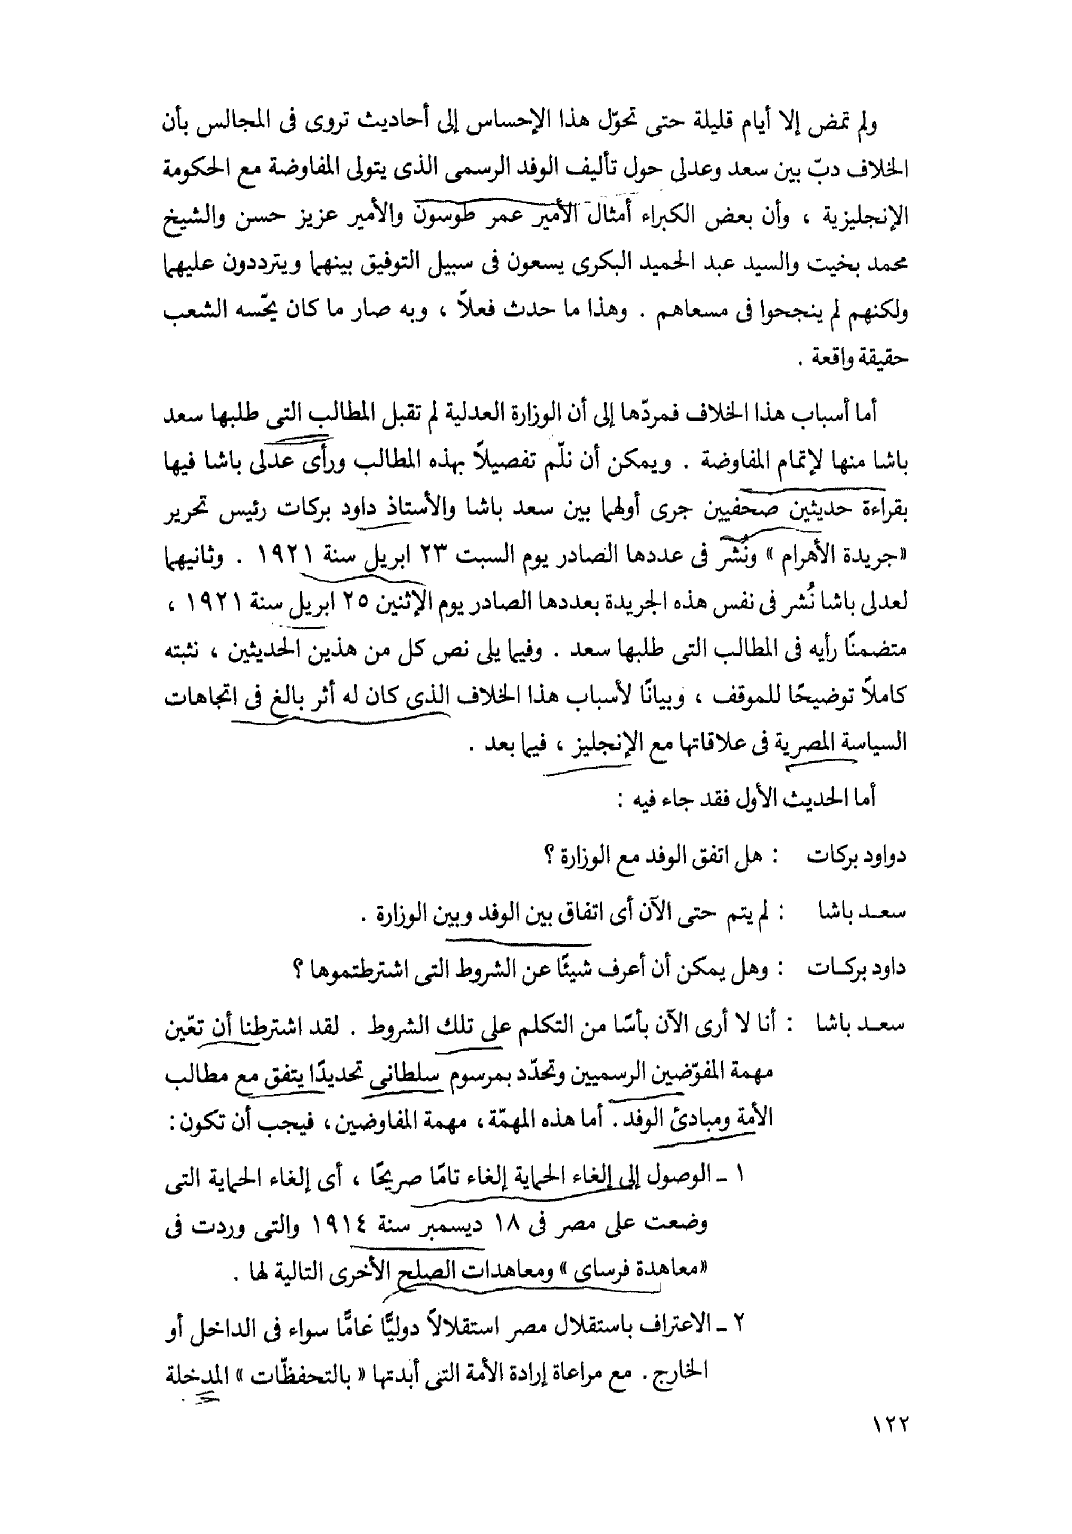 ولم تمض إلا أيام قليلة حتى تحوّل هذا الإحساس إلى أحاديث تروى فى المجالس بأن
الخلاف دبّ بين سعد وعدلى حول تأليف الوفد الرسمى الذى يتولى المفاوضة مع الحكومة
الإنجليزية ، وأن بعض الكبراء أمثال الأمير عمر طوسون والأمير عزيز حسن والشيخ
محمد بخيت والسيد عبد الحميد البكرى يسعون فى سبيل التوفيق بينهما ويترددون عليهما
ولكنهم لم ينجحوا فى مسعاهم . وهذا ما حدث فعلاً ، وبه صار ما كان يحّسه الشعب
حقيقة واقعة .
أما أسباب هذا الخلاف فمردّها إلى أن الوزارة العدلية لم تقبل المطالب التى طلبها سعد
باشا منها لإتمام المفاوضة . ويمكن أن نلّم تفصيلاً بهذه المطالب ورأى عدلى باشا فيها
بقراءة حديثين صحفيين جرى أولهما بين سعد باشا والأستاذ داود بركات رئيس تحرير
«جريدة الأهرام » ونُشر فى عددها الصادر يوم السبت ٢٣ ابريل سنة ١٩٢١ . وثانيهما
لعدلى باشا نُشر فى نفس هذه الجريدة بعددها الصادر يوم الإثنين ٢٥ ابريل سنة ١٩٢١ ،
متضمنًا رأيه فى المطالب التى طلبها سعد . وفيما يلى نص كل من هذين الحديثين ، نثبته
كاملاً توضيحًا للموقف ، وبيانًا لأسباب هذا الخلاف الذى كان له أثر بالغ فى اتجاهات
السياسة المصرية فى علاقاتها مع الإنجليز ، فيما بعد .
أما الحديث الأول فقد جاء فيه :
دواود بركات : هل اتفق الوفد مع الوزارة ؟
سعـد باشا : لم يتم حتى الآن أى اتفاق بين الوفد وبين الوزارة .
داود بركـات : وهل يمكن أن أعرف شيئًا عن الشروط التى اشترطتموها ؟
سعـد باشا : أنا لا أرى الآن بأسًا من التكلم على تلك الشروط . لقد اشترطنا أن تعّين
مهمة المفوّضين الرسميين وتحدّد بمرسوم سلطانى تحديدًا يتفق مع مطالب
الأمة ومبادئ الوفد . أما هذه المهمّة، مهمة المفاوضين، فيجب أن تكون:
١ ـ الوصول إلى إلغاء الحماية إلغاء تامًا صريحًا ، أى إلغاء الحماية التى
وضعت على مصر فى ١٨ ديسمبر سنة ١٩١٤ والتى وردت فى
«معاهدة فرساى » ومعاهدات الصلح الأخرى التالية لها .
٢ ـ الاعتراف باستقلال مصر استقلالاً دوليًّا عامًّا سواء فى الداخل أو
الخارج . مع مراعاة إرادة الأمة التى أبدتها « بالتحفظّات » المدخلة
١٢٢